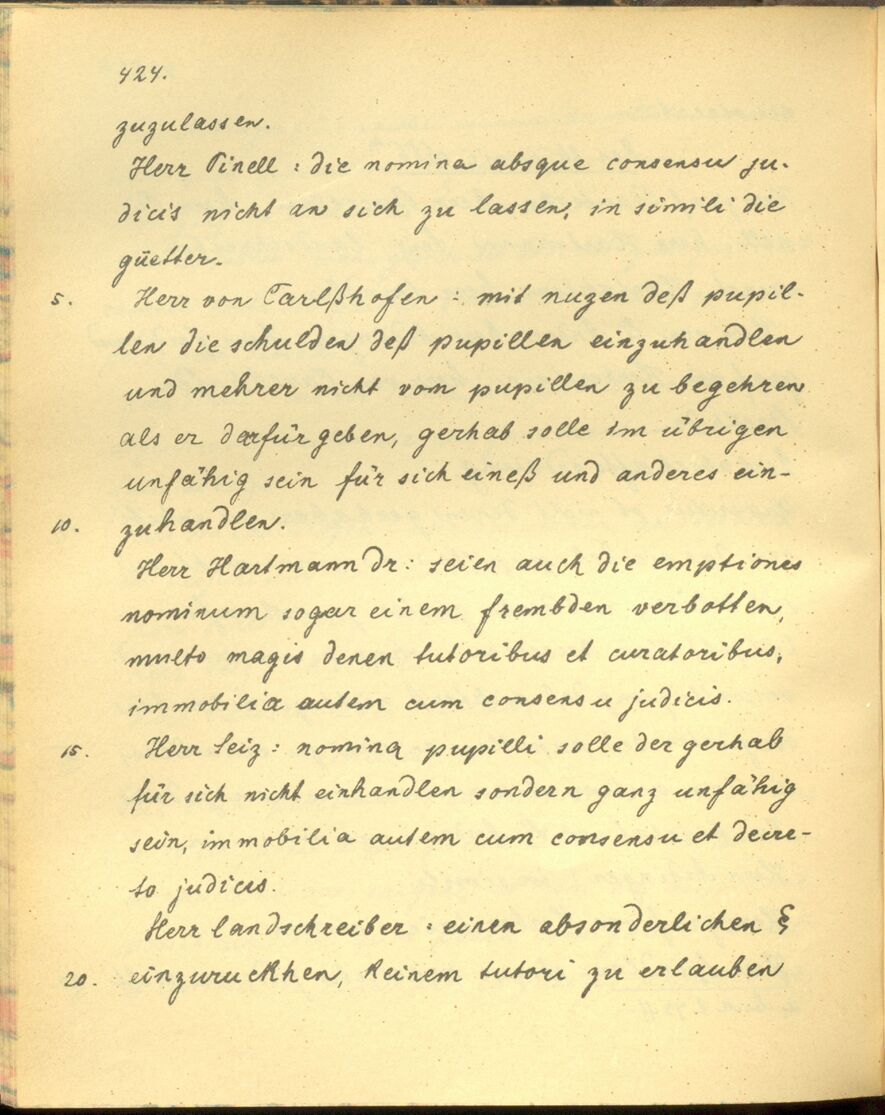 424.
zuzulassen.
Herr Pinell : die nomina absque consensu ju-
dicis nicht an sich zu lassen, in simili die
güetter.
5. Herr von Carlßhofen : mit nuzen deß pupil-
len die schulden deß pupillen einzuhandlen
und mehrer nicht vom pupillen zu begehren
als er darfür geben, gerhab solle im übrigen
unfähig sein für sich eineß und anderes ein-
10. zuhandlen.
Herr Hartmann Dr: seien auch die emptiones
nominum sogar einem frembden verbotten,
multo magis denen tutoribus et curatoribus,
immobilia autem cum consensu judicis.
15. Herr Leiz : nomina pupilli solle der gerhab
für sich nicht einhandlen sondern ganz unfähig
sein, immobilia autem cum consensu et decre-
to judicis.
Herr landschreiber : einen absonderlichen §
20. einzuruckhen, keinem tutori zu erlauben